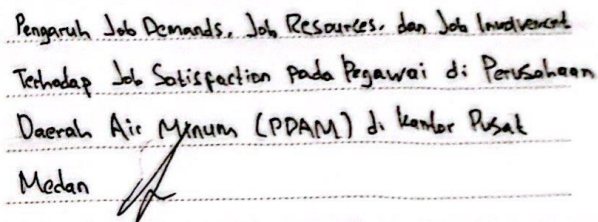 Pengaruh Job Demands, Job Resources, dan Job Involvement
Terhadap Job Satisfaction pada Pegawai di Perusahaan
Daerah Air Minum (PDAM) di kantor Pusat
Medan